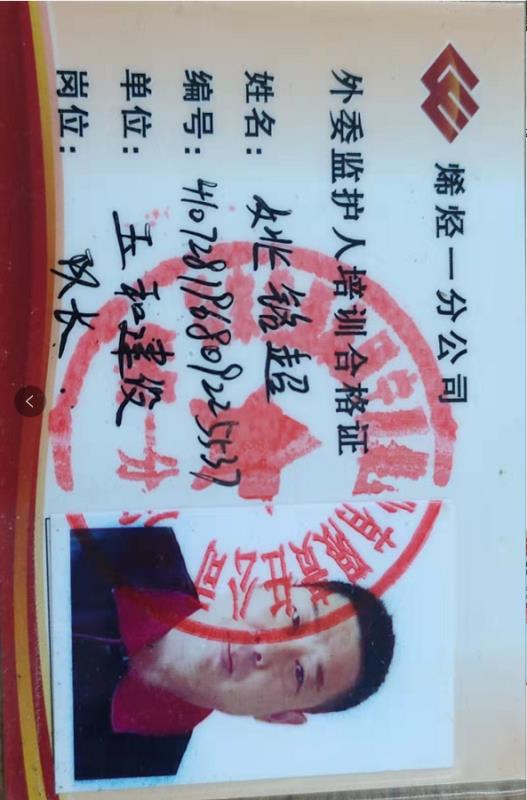 烯烃一分公司
外委监护人培训合格证
姓名：姚铭超
编号：410728196809225537
单位：五和建设
岗位：队长